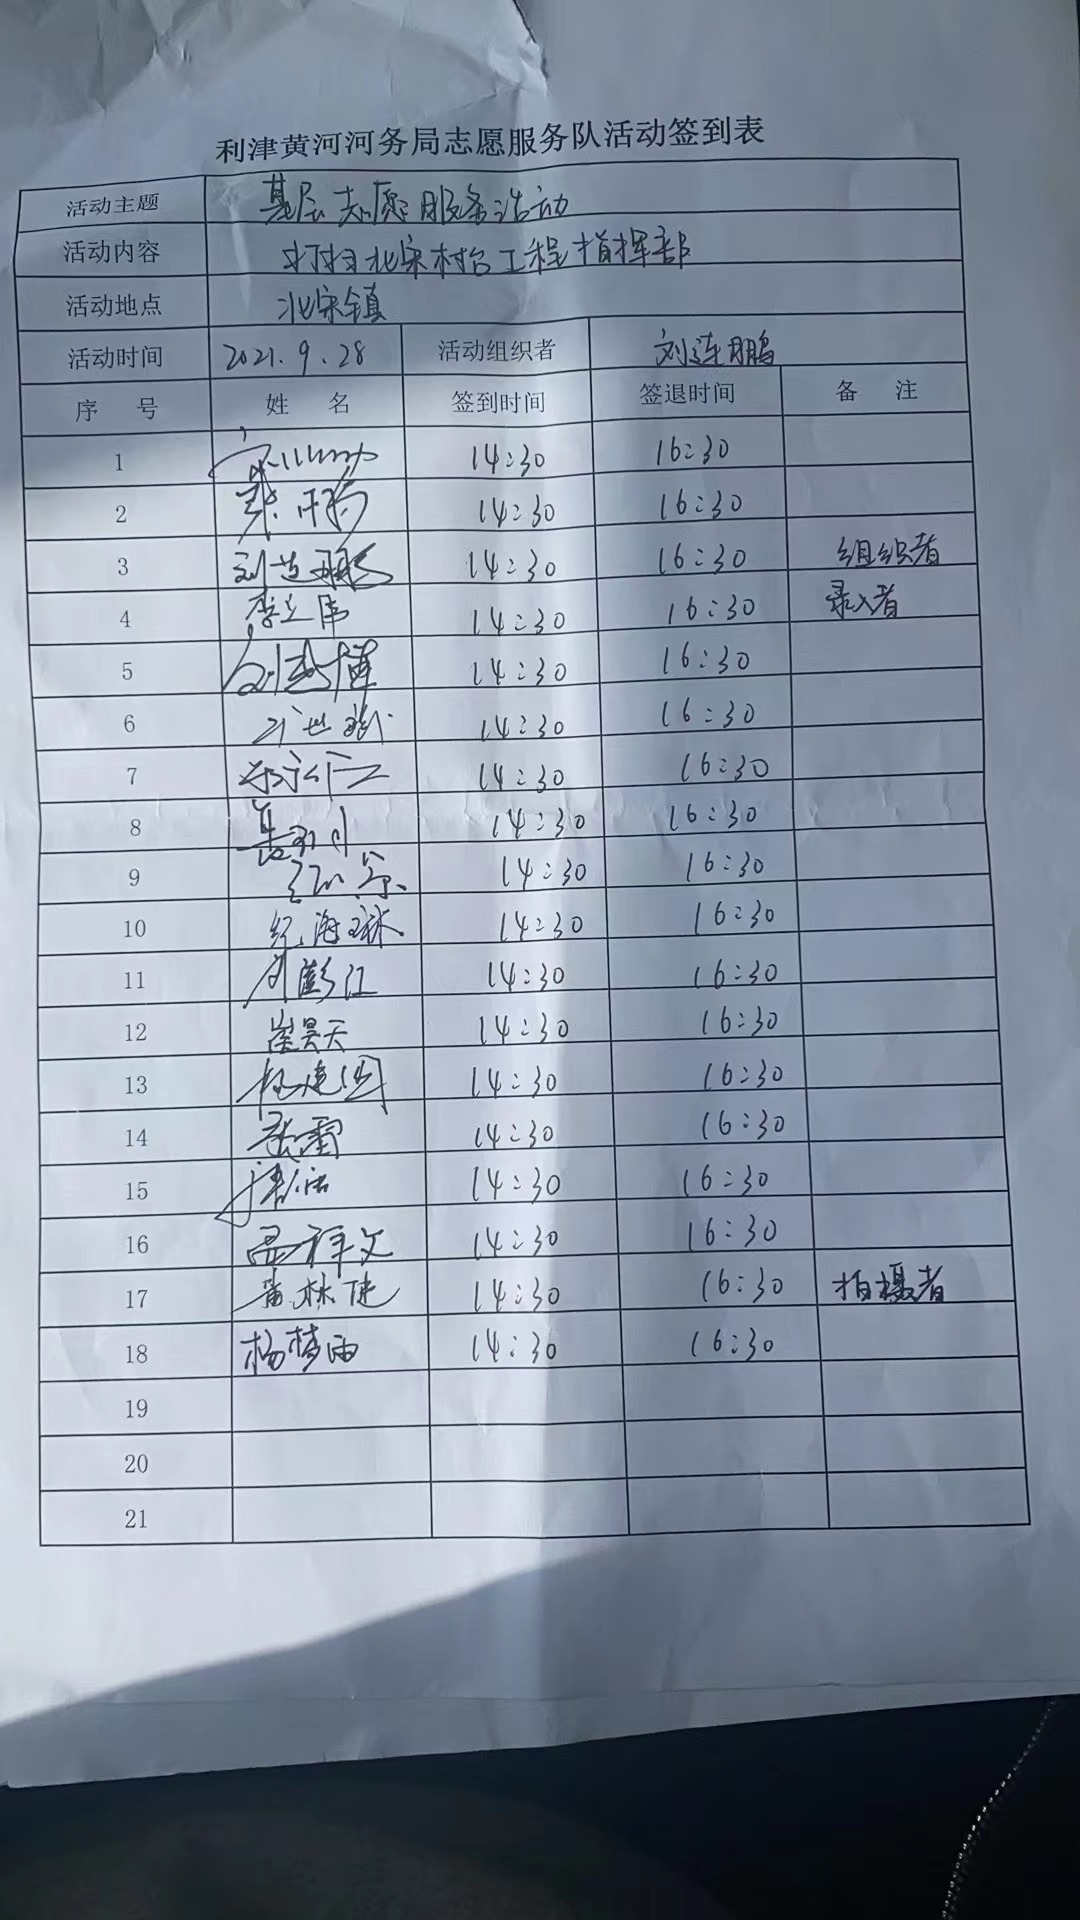 利津黄河河务局志愿服务队活动签到表
活动主题 基层志愿服务活动
活动内容 打扫北宋村台工程指挥部
活动地点 北宋镇
活动时间 2021.9.28 活动组织者 刘连鹏
序 号 姓 名 签到时间 签退时间 备 注
1 14:30 16:30
2 14:30 16:30
3 刘连鹏 14:30 16:30 组织者
4 李立伟 14:30 16:30 录入者
5 14:30 16:30
6 14:30 16:30
7 14:30 16:30
8 14:30 16:30
9 14:30 16:30
10 纪海琳 14:30 16:30
11 14:30 16:30
12 崔昊天 14:30 16:30
13 杨建国 14:30 16:30
14 张雷 14:30 16:30
15 14:30 16:30
16 14:30 16:30
17 14:30 16:30 拍摄者
18 杨梦雨 14:30 16:30
19
20
21